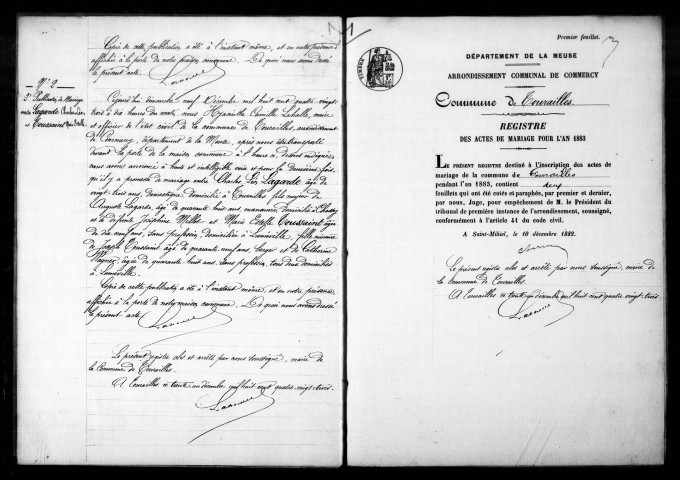 Copie de cette publication a été à l'instant même, et en notre présence
affichée à la porte de notre maison commune. De quoi nous avons dressé
le présent acte.
N° 9
2e Publication de Mariage
entre Lagarde Charles Léo
et Toussaint Marie Estelle
Cejourd'hui dimanche neuf Décembre mil huit cent quatre-vingt-
trois à dix heures du matin, nous Hyacinthe Camille Lahalle, maire
et officier de l'état civil de la commune de Tourailles, arrondissement
de Commercy, département de la Meuse, après nous être transporté
devant la porte de la maison commune à l'heure ci-dessus indiquée
nous avons annoncé à haute et intelligible voix et pour la deuxième fois
qu'il y a promesse de mariage entre Charles Léo Lagarde âgé de
vingt trois ans, domestique domicilié à Tourailles fils majeur de
Auguste Lagarde, âgé de quarante huit ans, manœuvre, domicilié à
et de la défunte Joséphine et Marie Estelle Toussaint âgée
de dix neuf ans, sans profession, domiciliée à Lunéville, fille mineure
de Joseph Toussaint âgé de quarante neuf ans, berger et de Catherine
Wagner, âgée de quarante huit ans, sans profession, tous deux domiciliés
à Lunéville.
Copie de cette publication a été à l'instant même, et en notre présence
affichée à la porte de notre maison commune. De quoi nous avons dressé
le présent acte.
Le présent registre clos et arrêté par nous soussigné, maire de
la Commune de Tourailles.
A Tourailles ce trente un décembre mil huit cent quatre-vingt-trois.
Premier feuillet.
TIMBRE
DÉPARTEMENT DE LA MEUSE
ARRONDISSEMENT COMMUNAL DE COMMERCY
Commune de Tourailles.
REGISTRE
DES ACTES DE MARIAGE POUR L'AN 1883
LE PRÉSENT REGISTRE destiné à l'inscription des actes de
mariage de la commune de Tourailles
pendant l'an 1883, contient deux
feuillets qui ont été cotés et paraphés, par premier et dernier,
par nous, Juge, pour empêchement de M. le Président du
tribunal de première instance de l'arrondissement, soussigné,
conformément à l'article 41 du code civil.
A Saint-Mihiel, le 10 décembre 1882.
Le présent registre clos et arrêté par nous soussigné, maire de
la Commune de Tourailles.
A Tourailles ce trente un décembre mil huit cent quatre-vingt-trois.